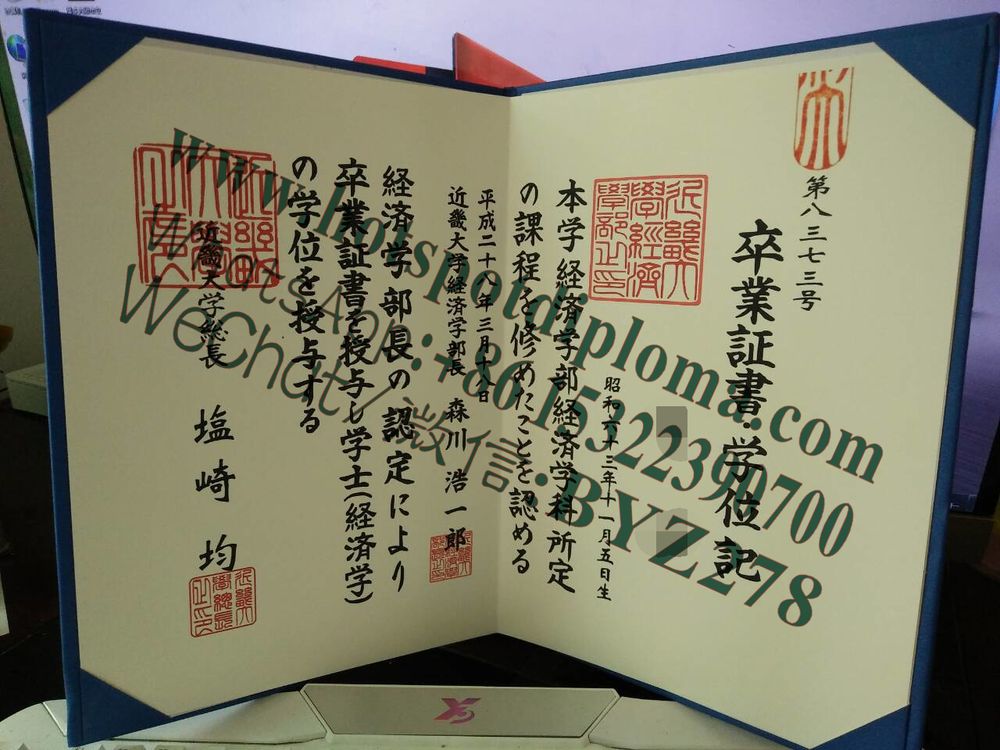 第八三七三号
卒業証書・学位記
昭和六十三年十一月五日生
本学経済学部経済学科所定
の課程を修めたことを認める
平成二十八年三月十八日
近畿大学経済学部長 森川浩一郎
経済学部長の認定により
卒業証書を授与し学士(経済学)
の学位を授与する
近畿大学総長 塩崎均
www.hotspotdiploma.com
WhatsApp:+8615322390700
WeChat/微信:BYZ278